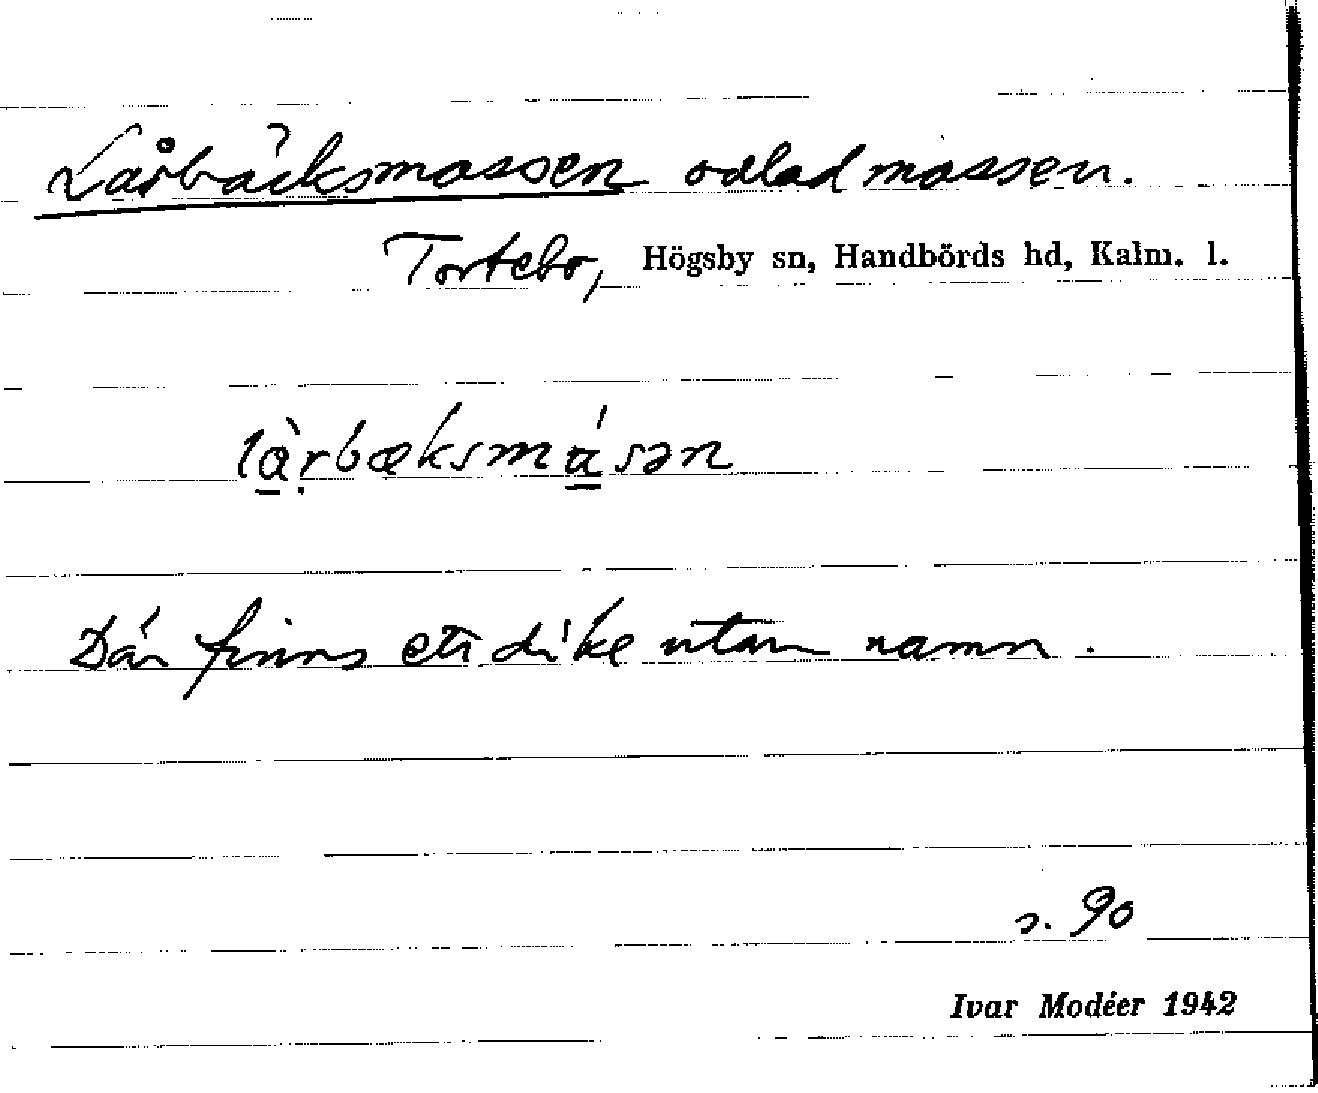 Lårbäcksmossen odlad mossen.
Tortebo, Högsby sn, Handbörds hd, Kalm. l.
là̱ṛbæksmá̱sən
Där finns ett dike utan namn.
s. 90
Ivar Modéer 1942